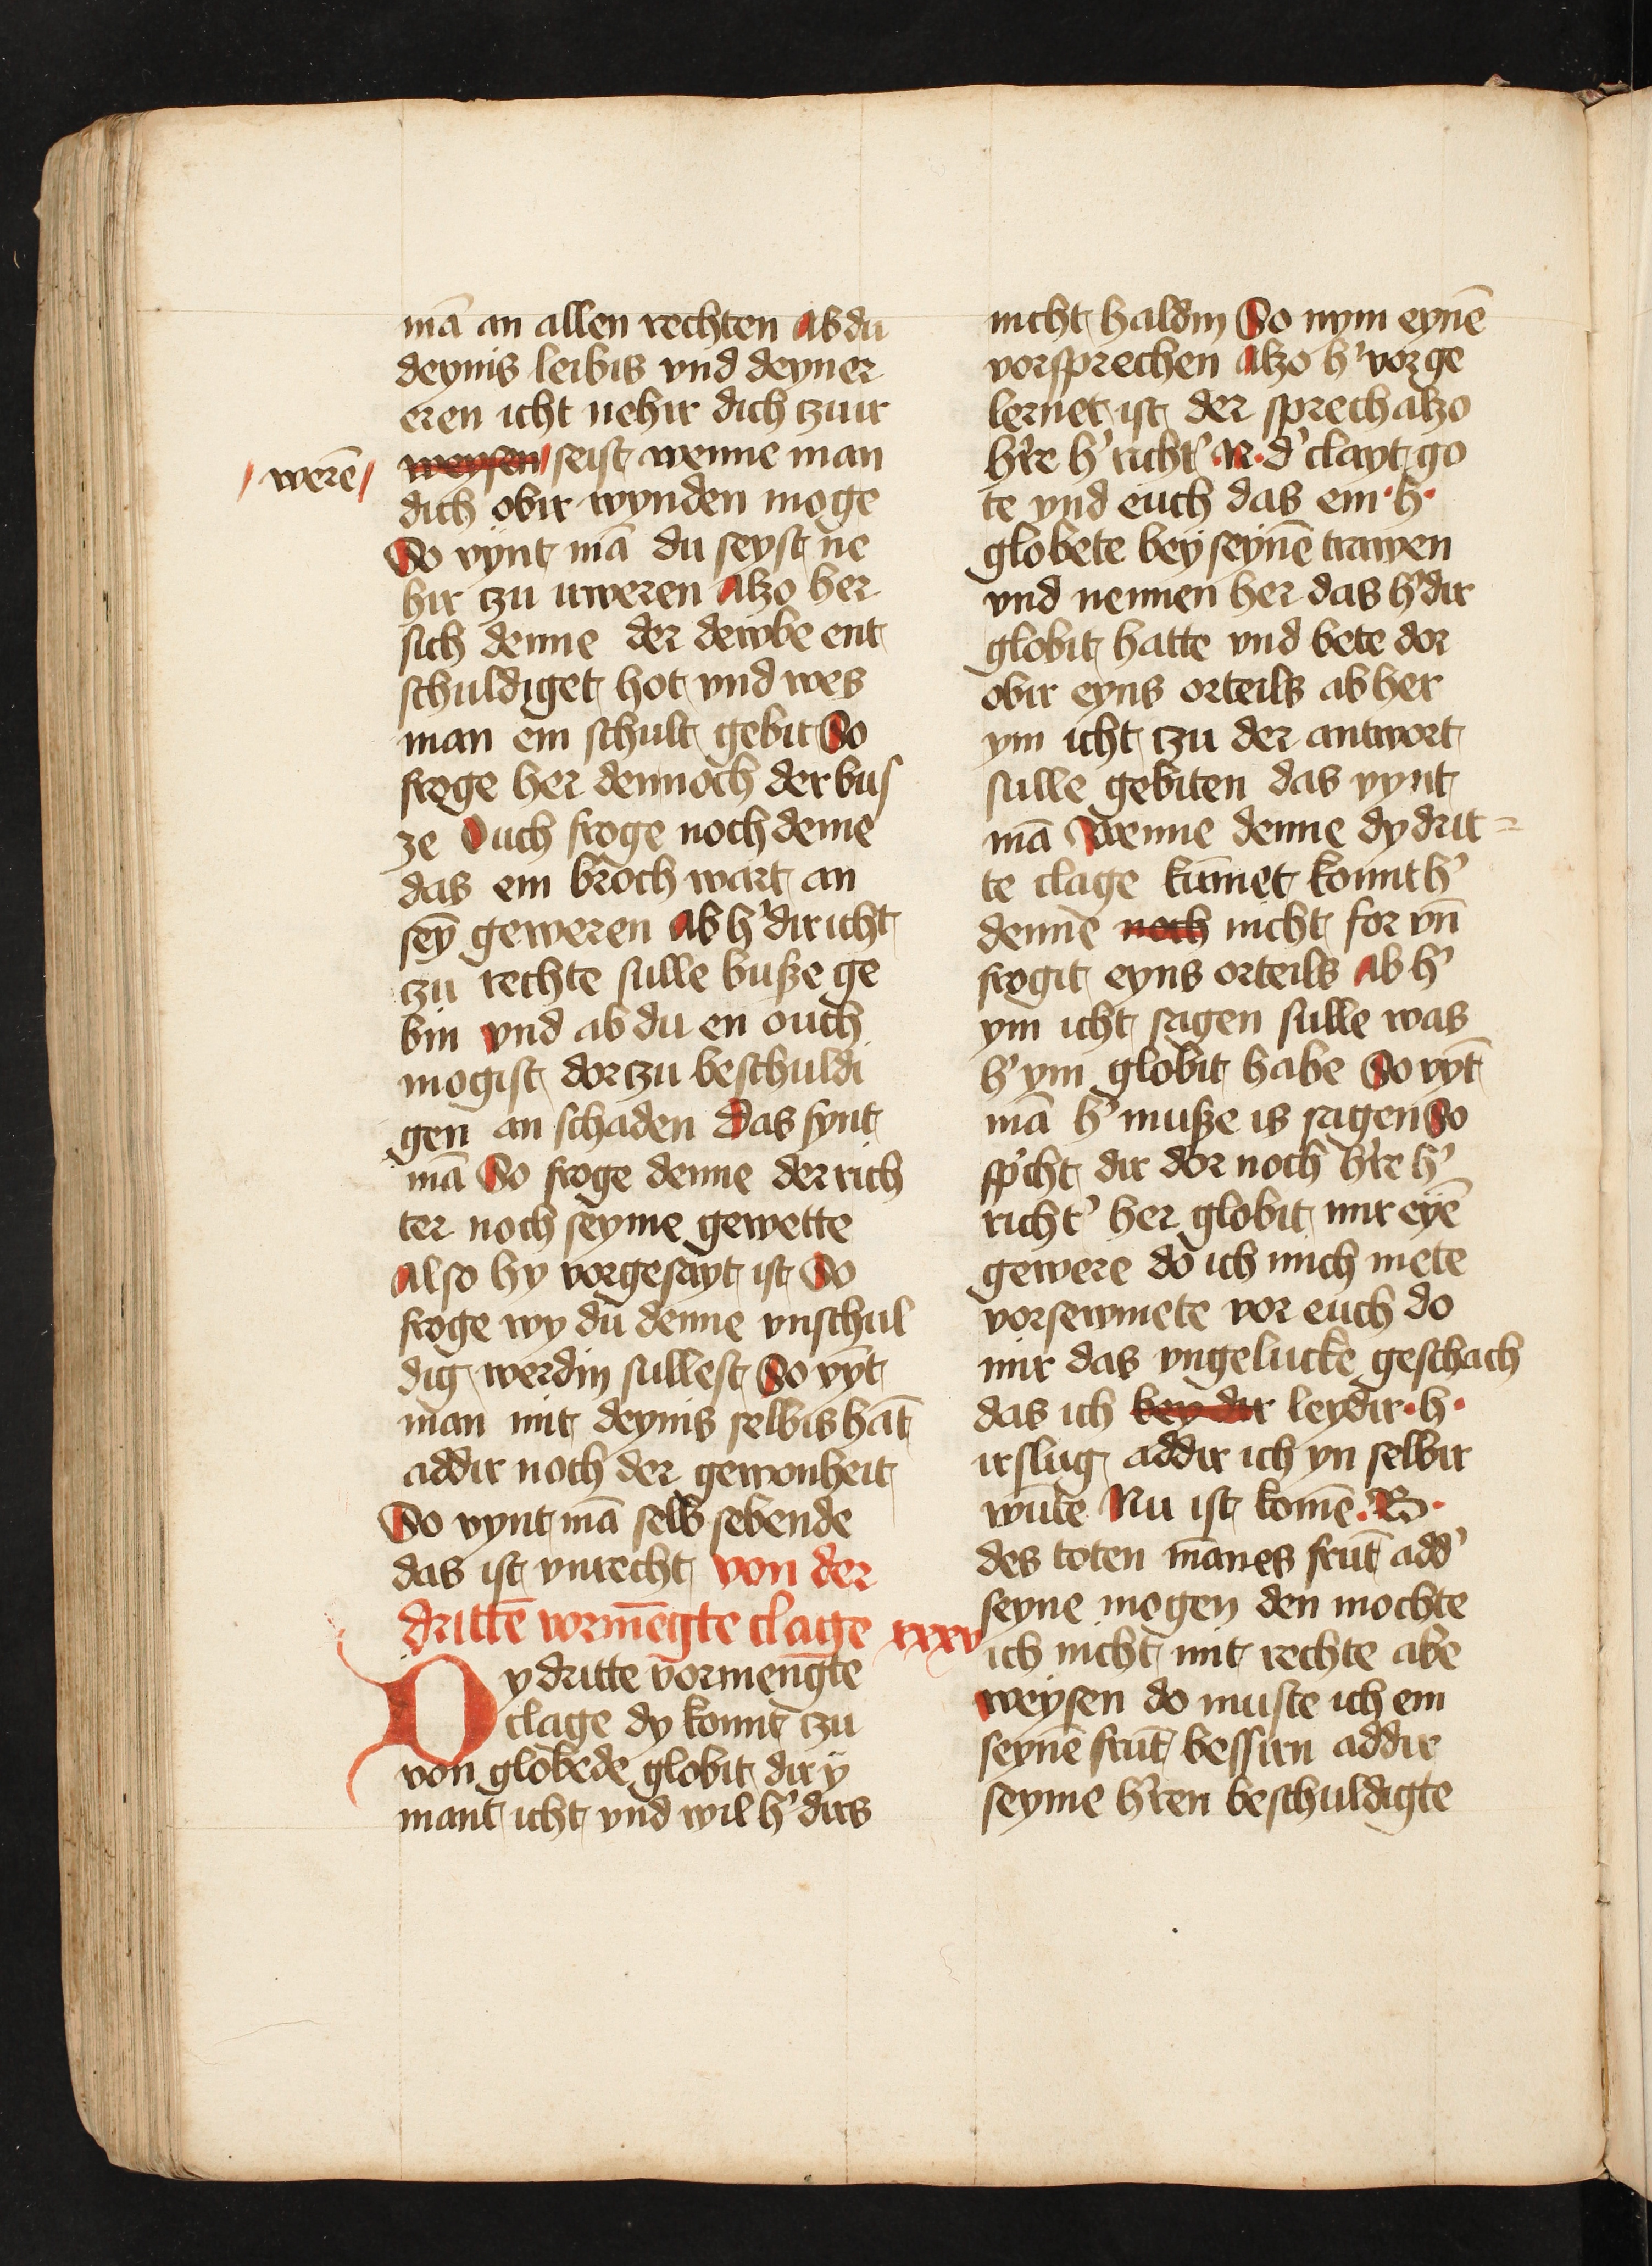 mā an allen rechten Ab du
deynis leibis vnd deyner
eren icht nehir dich czu ir
werē weysen seist wenne man
dich obir wynden moge
So vynt mā du seyst ne
hir czu irweren Alzo her
sich denne der dewbe ent
schuldiget hot vnd wes
man em schult gebit So
froge her dennoch der bus
ze Ouch froge noch deme
das em broch wart an
sey̅ geweren Ab h' dir icht
czu rechte sulle busze ge
bin vnd ab du en ouch
mogist dor czu beschuldi
gen an schaden Das fynt
mā So froge denne der rich
ter noch seyme gewette
Also hy vorgesayt ist So
froge wy du denne vnschul
dig werdin sullest So vy̅t
man mit deynis selbis hāt
addir noch der gewonheit
So vynt mā selb sebende
das ist vnrecht von der
drittē vormēgte clage xxxv
Dy dritte vormengte
clage dy komt czu
von globede globit dir y
mant icht vnd wil h' dirs
nicht haldin So nym eynē
vorsprechen Alzo h' vorge
lernet ist der sprech alzo
h're h' richt' .N. d' clayt go
te vnd euch das em .h.
globete bey seynē trawen
vnd nennen her das h' dir
globit hatte vnd bete dor
obir eyns orteils ab her
ym icht czu der antwort
sulle gebiten das vynt
mā Wenne denne dy drit=
te clage kūmet komt h'
denne noch nicht for vn̄
frogit eyns orteils Ab h'
ym icht sagen sulle was
h' ym globit habe So vy̅t
mā h' musze is sagen So
sp'cht dir dor noch h're h'
richt' her globit mir eyē
gewere do ich mich mete
vorsewmete vor euch do
mir das vngelucke geschach
das ich bey dir leydir .h.
irslug addir ich yn selbir
wūte Nu ist komē .B.
des toten mānes frūt add'
seyne mogen den mochte
ich nicht mit rechte abe
weysen do muste ich em
seynē frūt bessirn addir
seyme h'ren beschuldigte